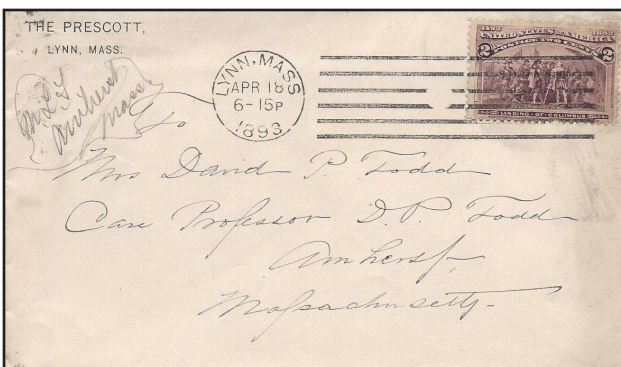 THE PRESCOTT,
LYNN, MASS.
Amherst
Mass
LYNN, MASS
APR 18
6-15P
1893
1492 1892
UNITED STATES OF AMERICA
POSTAGE TWO CENTS
2 2
LANDING OF COLUMBUS
To
Mrs David P. Todd
Care Professor D. P. Todd
Amherst
Massachusetts-